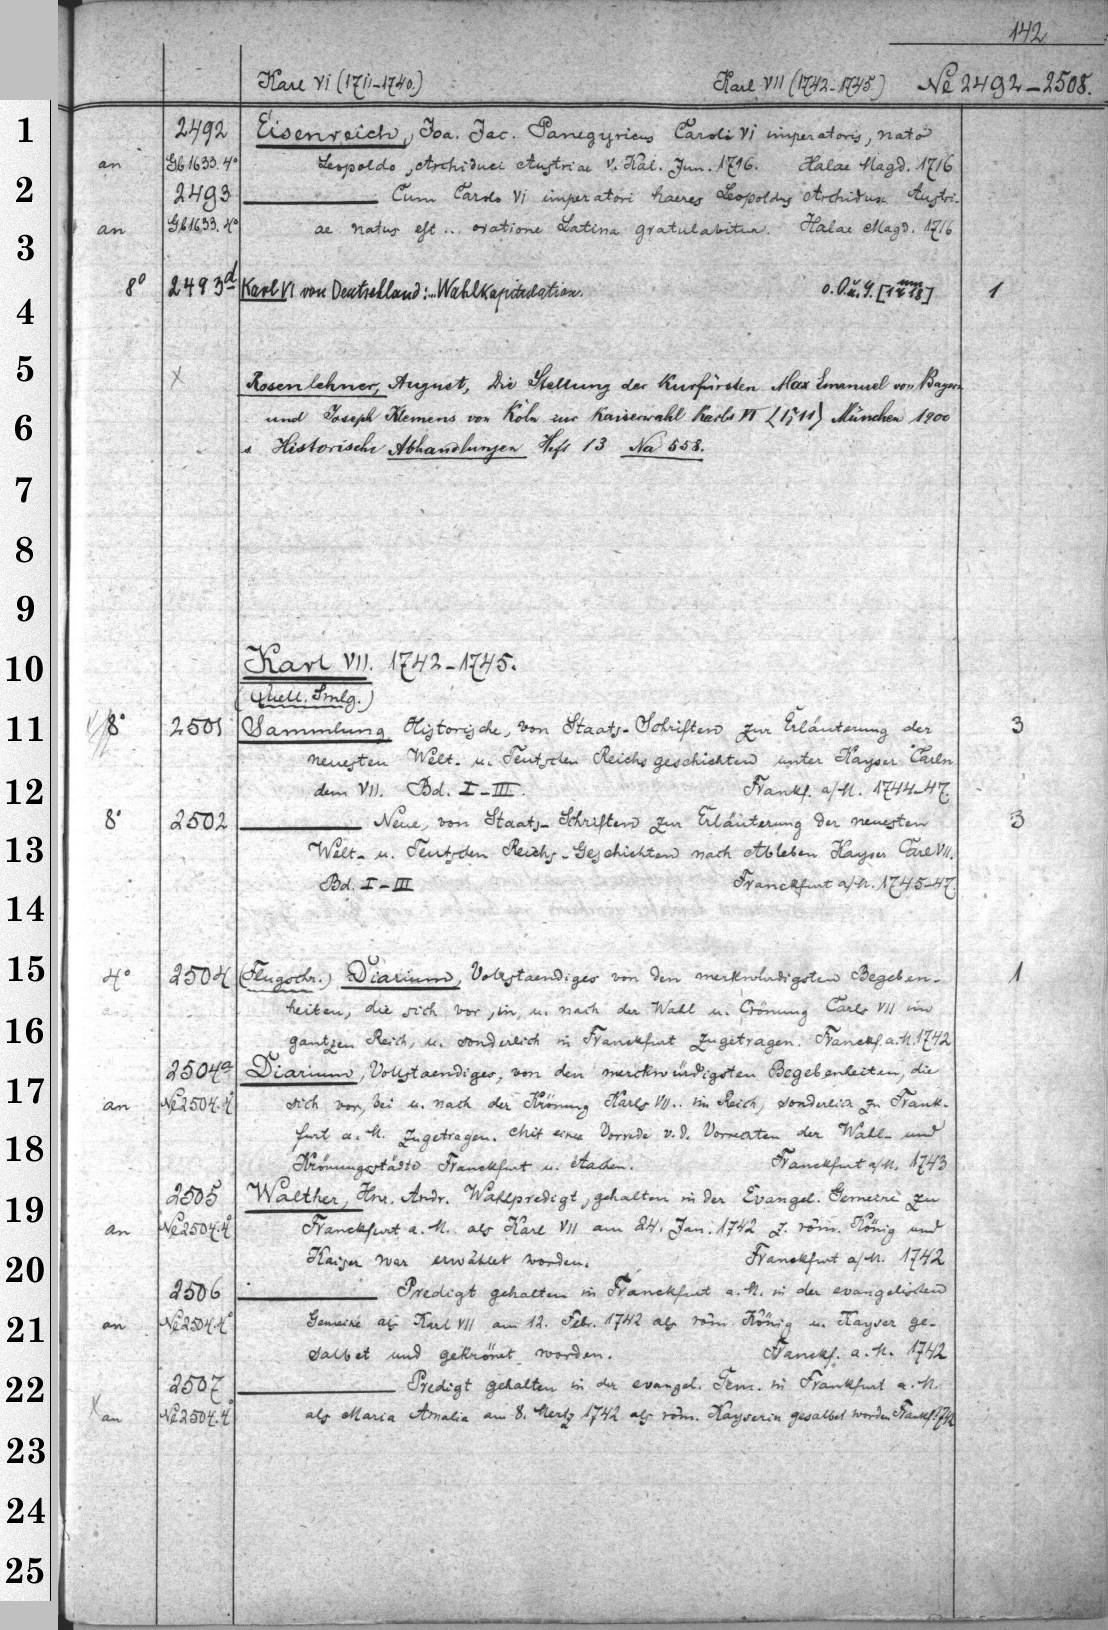 142
Karl VI (1711-1740.) Karl VII (1742-1745.) Ne 2492-2508.
2492 Eisenreich, Joa. Jac. Panegyricus Carolo VI imperatoris, nato
an Gb1633.4° Leopoldo, Archiduci Austriae V. Kal. Jun. 1716. Halae Magd. 1716
2493 ——— Cum Carolo VI imperatori haeres Leopoldus Archidux Austri-
an Gb1633.4° ae natus est... oratione Latina gratulabitur. Halae Magd. 1716
8° 2493d Karl VI von Deutschland:... Wahlkapitulation. o. O. u. J. 1
X Rosenlehner, August, Die Stellung der Kurfürsten Max Emanuel von Bayern
und Joseph Klemens von Köln zur Kaiserwahl Karls VI (1711) München 1900
s Historische Abhandlungen Heft 13 Na 558.
Karl VII. 1742-1745.
(Quell. Smlg.)
8° 2501 Sammlung Historische, von Staats-Schriften zur Erläuterung der 3
neuesten Welt- u. Teutschen Reichsgeschichten unter Kayser Carln
dem VII. Bd. I-III. Frankf. a/M. 1744-47.
8° 2502 ——— Neue, von Staats-Schriften zur Erläuterung der neuesten 3
Welt- u. Teutschen Reichs-Geschichten nach Ableben Kayser Carl VII.
Bd. I-III Franckfurt a/M. 1745-47.
4° 2504 (Flugschr.) Diarium, Vollstaendiges von den merkwürdigsten Begeben- 1
heiten, die sich vor, in, u. nach der Wahl u. Crönung Carls VII im
gantzen Reich, u. sonderlich in Franckfurt zugetragen. Franckf. a.M. 1742
2504a Diarium, Vollstaendiges, von den merckwürdigsten Begebenheiten, die
an Ne2504.4° sich vor, bei u. nach der Krönung Karls VII.. im Reich, sonderlich zu Frank-
furt a. M. zugetragen. Mit einer Vorrede v. d. Vorrechten der Wahl- und
Krönungsstädte Franckfurt u. Aachen. Franckfurt a/M. 1743
2505 Walther, Hnr. Andr. Wahlpredigt, gehalten in der Evangel. Gemeine zu
an Ne2504.4° Franckfurt a. M. als Karl VII am 24. Jan. 1742 z. röm. König und
Kaiser war erwählet worden. Franckfurt a/M. 1742
2506 ——— Predigt gehalten in Franckfurt a. M. in der evangelischen
an Ne2504.4° Gemeine als Karl VII am 12. Febr. 1742 als röm. König u. Kayser ge-
salbet und gekrönet worden. Franckf. a. M. 1742
2507 ——— Predigt gehalten in der evangel. Gem. in Frankfurt a. M.
X an Ne2504.4° als Maria Amalia am 8. Mertz 1742 als röm. Kayserin gesalbet worden Frankf. 1742
1
2
3
4
5
6
7
8
9
10
11
12
13
14
15
16
17
18
19
20
21
22
23
24
25